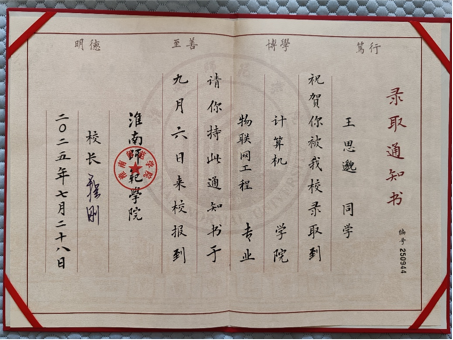 篤行
博學
至善
明德
录取通知书
編号 250944
王思邈 同学
祝贺你被我校录取到
计算机 学院
物联网工程 专业
请你持此通知书于
九月六日来校报到
淮南師範學院
校长
二〇二五年七月二十八日